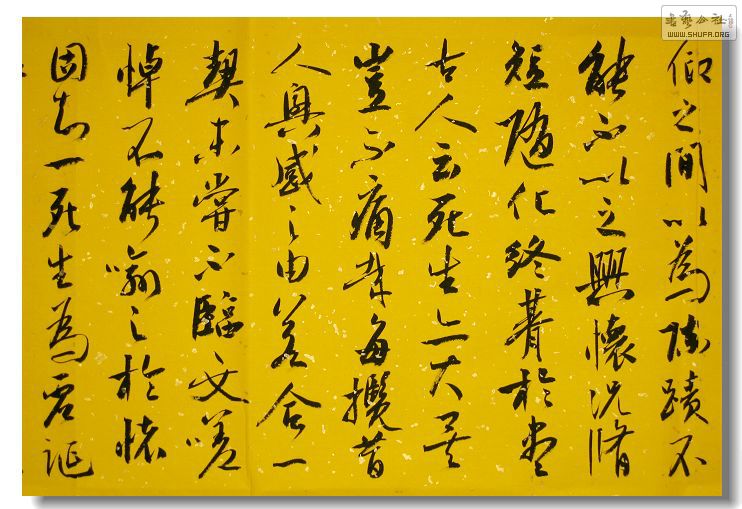 仰之間以為陳蹟不
能不以之興懷況脩
短隨化終朞於盡
古人云死生亦大矣
豈不痛哉每攬昔
人興感之由若合一
契未嘗不臨文嗟
悼不能喻之於懷
固知一死生為虛誕
书艺公社
WWW.SHUFA.ORG